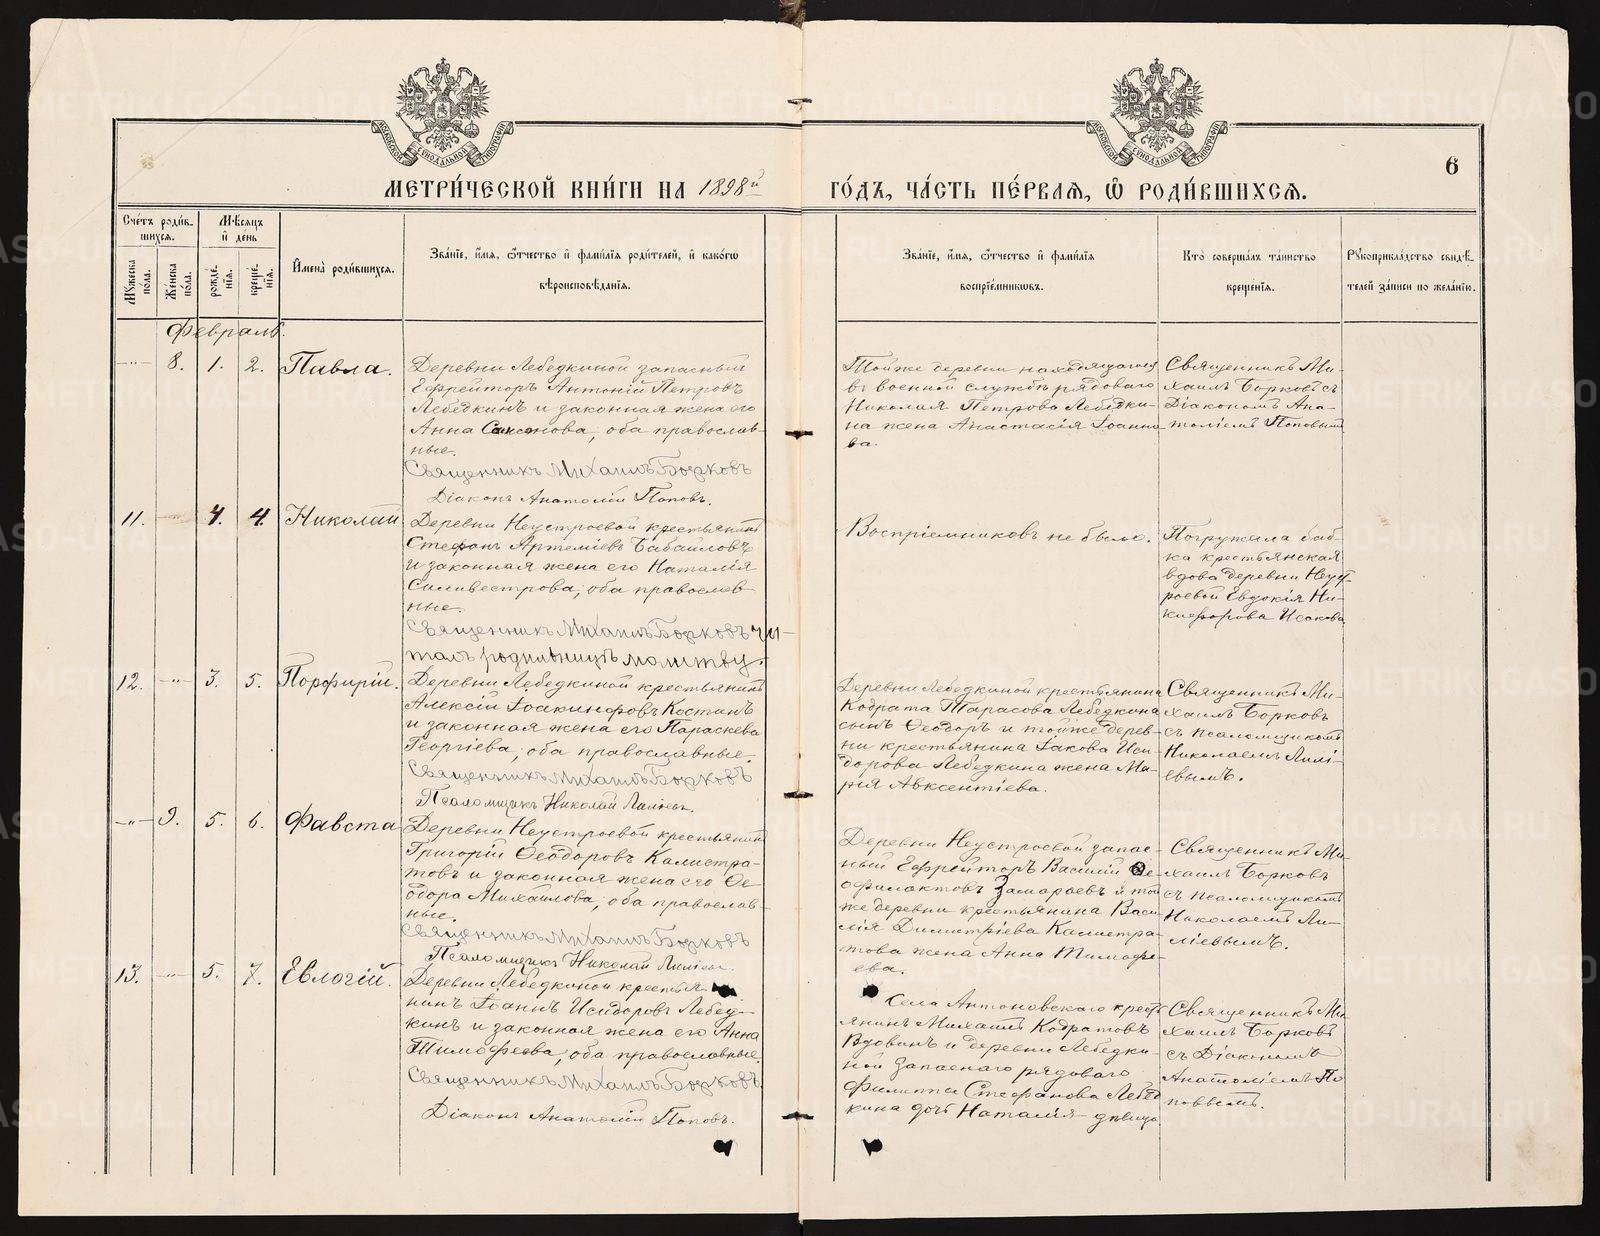 МОСКОВСКОЙ СѴНОДАЛЬНОЙ ТИПОГРАФІИ
МОСКОВСКОЙ СѴНОДАЛЬНОЙ ТИПОГРАФІИ
6
МЕТРИ́ЧЕСКОЙ КНИ́ГИ НА 1898й
ГО́ДЪ, ЧА́СТЬ ПЕ́РВАѦ, Ѽ РОДИ́ВШИХСѦ.
Сче́тъ роди́в-
шихсѧ.
Мꙋ́жеска по́ла.
Же́нска по́ла.
Мѣ́сѧцъ и҆ де́нь
рожде́нїѧ.
креще́нїѧ.
И҆мена̀ роди́вшихсѧ.
Зва́нїе, и҆́мѧ, ѻ҆́тчество и҆ фами́лїѧ роди́телей, и҆ како́гѡ
вѣроисповѣ́данїѧ.
Зва́нїе, и҆́мѧ, ѻ҆́тчество и҆ фами́лїѧ
воспрїе́мникѡвъ.
Кто̀ соверша́лъ та́инство
креще́нїѧ.
Рꙋкоприкла́дство свидѣ́-
телей за́писи по жела́нїю.
Февраль.
-"- 8. 1. 2. Павла.
Деревни Лебедкиной запасный
Ефрейторъ Антоній Петровъ
Лебедкинъ и законная жена его
Анна Самсонова, оба православ-
ные.
Священникъ Михаилъ Борковъ
Діаконъ Анатолій Поповъ.
Той же деревни находящагося
въ военной службѣ рядоваго
Николая Петрова Лебедки-
на жена Анастасія Іоанно
ва.
Священникъ Ми-
хаилъ Борковъ съ
Діакономъ Ана-
толіемъ Поповымъ
11. -"- 4. 4. Николай
Деревни Неустроевой крестьянинъ
Стефанъ Артеміевъ Бабаиловъ
и законная жена его Наталія
Силивестрова, оба православ-
ные.
Священникъ Михаилъ Борковъ чи-
талъ родильницѣ молитву.
Воспріемниковъ не было.
Погружала баб-
ка крестьянская
вдова деревни Неуст-
роевой Евдокія Ни-
кифорова Исакова
12. -"- 3. 5. Порфирій.
Деревни Лебедкиной крестьянинъ
Алексій Іоакинфовъ Костинъ
и законная жена его Параскева
Георгіева, оба православные.
Священникъ Михаилъ Борковъ
Псаломщикъ Николай Лиліевъ.
Деревни Лебедкиной крестьянина
Кодрата Тарасова Лебедкина
сынъ Ѳеодоръ и той же дерев-
ни крестьянина Іакова Иси-
дорова Лебедкина жена Ма-
рія Авксентіева.
Священникъ Ми-
хаилъ Борковъ
съ псаломщикомъ
Николаемъ Лилі-
евымъ.
-"- 9. 5. 6. Фавста
Деревни Неустроевой крестьянинъ
Григорій Ѳеодоровъ Калистра-
товъ и законная жена его Ѳе-
одора Михаилова, оба православ-
ные.
Священникъ Михаилъ Борковъ
Псаломщикъ Николай Лиліевъ.
Деревни Неустроевой запас-
ный Ефрейторъ Василій Ѳе-
офилактовъ Замараевъ и той
же деревни крестьянина Васи-
лія Димитріева Калистра-
това жена Анна Тимофе-
ева.
Священникъ Ми-
хаилъ Борковъ
съ псаломщикомъ
Николаемъ Ли-
ліевымъ.
13. -"- 5. 7. Евлогій.
Деревни Лебедкиной крестья-
нинъ Іоаннъ Исидоровъ Лебед-
кинъ и законная жена его Анна
Тимофеева, оба православные.
Священникъ Михаилъ Борковъ
Діаконъ Анатолій Поповъ.
Села Антоновскаго крест
янинъ Михаилъ Кодратовъ
Вдовинъ и деревни Лебедки-
ной запаснаго рядоваго
Филиппа Стефанова Лебед
кина дочь Наталія дѣвица
Священникъ Ми-
хаилъ Борковъ
съ Діакономъ
Анатоліемъ По
повымъ.